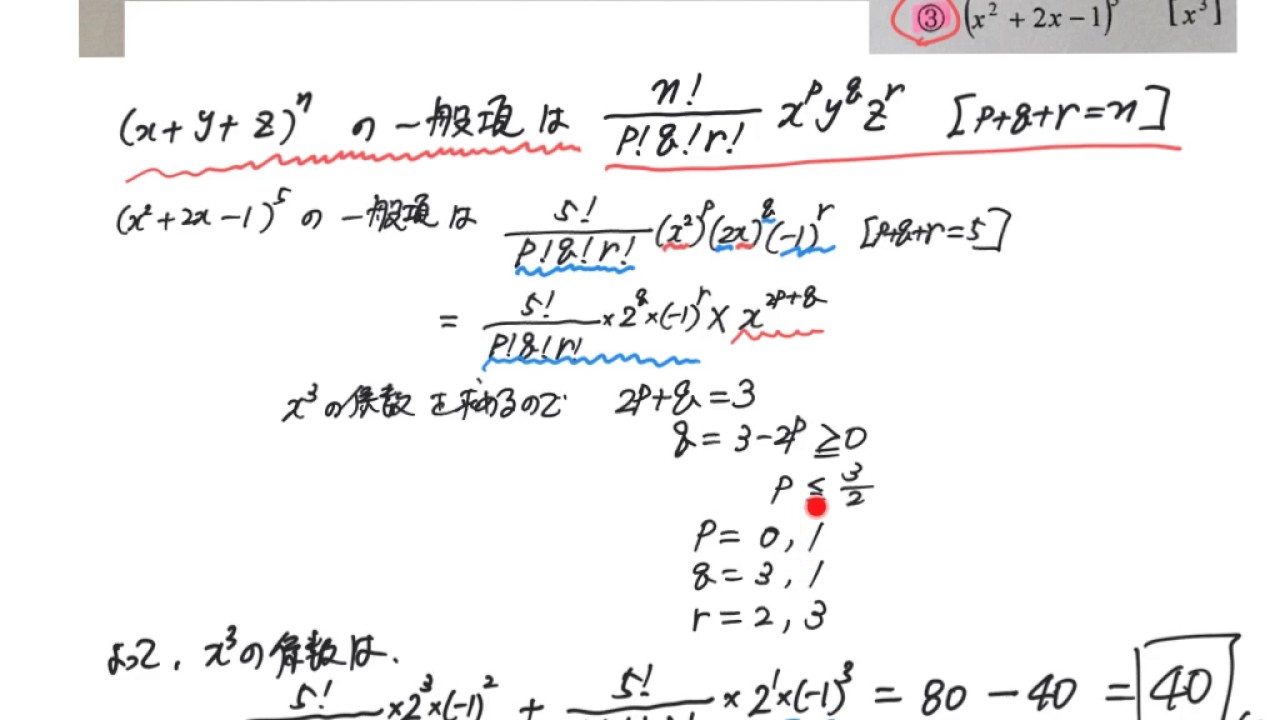 ③ (x² + 2x − 1)⁵ [x³]
(x + y + z)ⁿ の一般項は n!/(p!q!r!) xᵖy^q zʳ [p+q+r=n]
(x²+2x−1)⁵ の一般項は 5!/(p!q!r!) (x²)ᵖ(2x)^q(−1)ʳ [p+q+r=5]
= 5!/(p!q!r!) × 2^q × (−1)ʳ × x^(2p+q)
x³の係数を求めるので 2p+q=3
q = 3−2p ≧ 0
p ≦ 3/2
p = 0, 1
q = 3, 1
r = 2, 3
よって、x³の係数は、
5! × 2³ × (−1)² + 5! × 2¹ × (−1)³ = 80 − 40 = 40